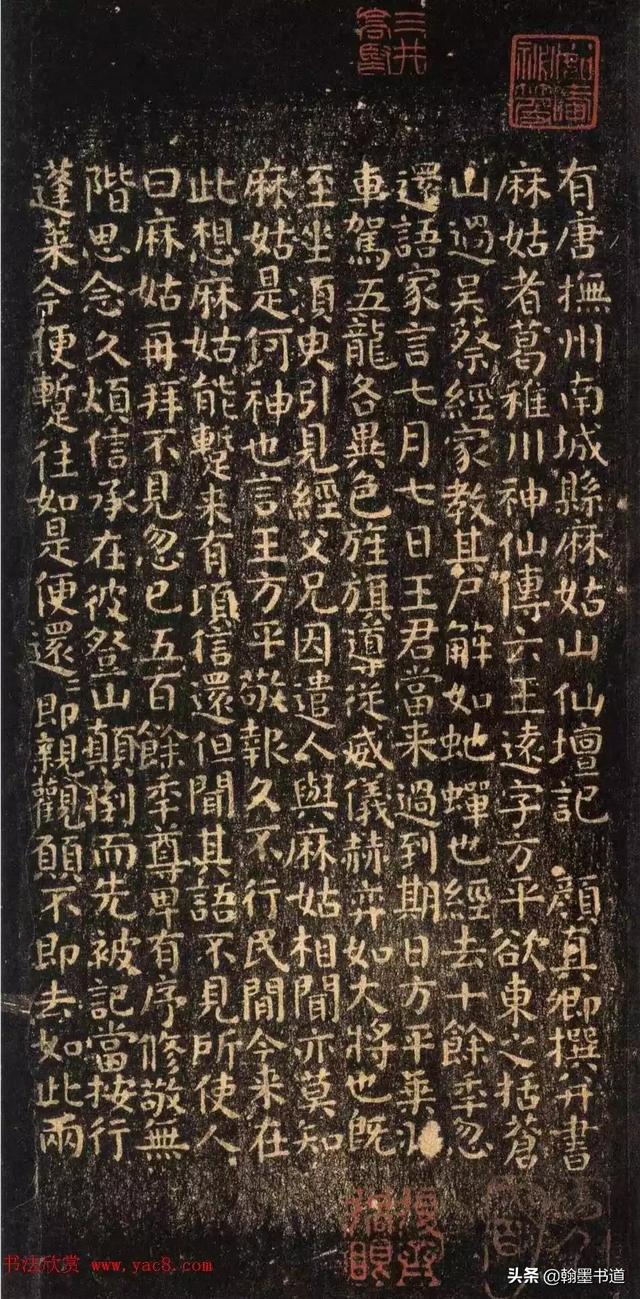 有唐撫州南城縣麻姑山仙壇記 顏真卿撰并書
麻姑者葛稚川神仙傳云王遠字方平欲東之括蒼
山過吴蔡經家教其尸解如虵蟬也經去十餘秊忽
還語家言七月七日王君當来過到期日方平乘羽
車駕五龍各異色旌旗導從威儀赫弈如大將也既
至坐須臾引見經父兄因遣人與麻姑相聞亦莫知
麻姑是何神也言王方平敬報久不行民間今来在
此想麻姑能蹔来有頃信還但聞其語不見所使人
曰麻姑再拜不見忽已五百餘秊尊卑有序修敬無
階思念久煩信承在彼登山顛倒而先被記當按行
蓬莱今便蹔往如是便還〻即親觀願不即去如此兩
三井高堅
书法欣赏 www.yac8.com
头条 @翰墨书道